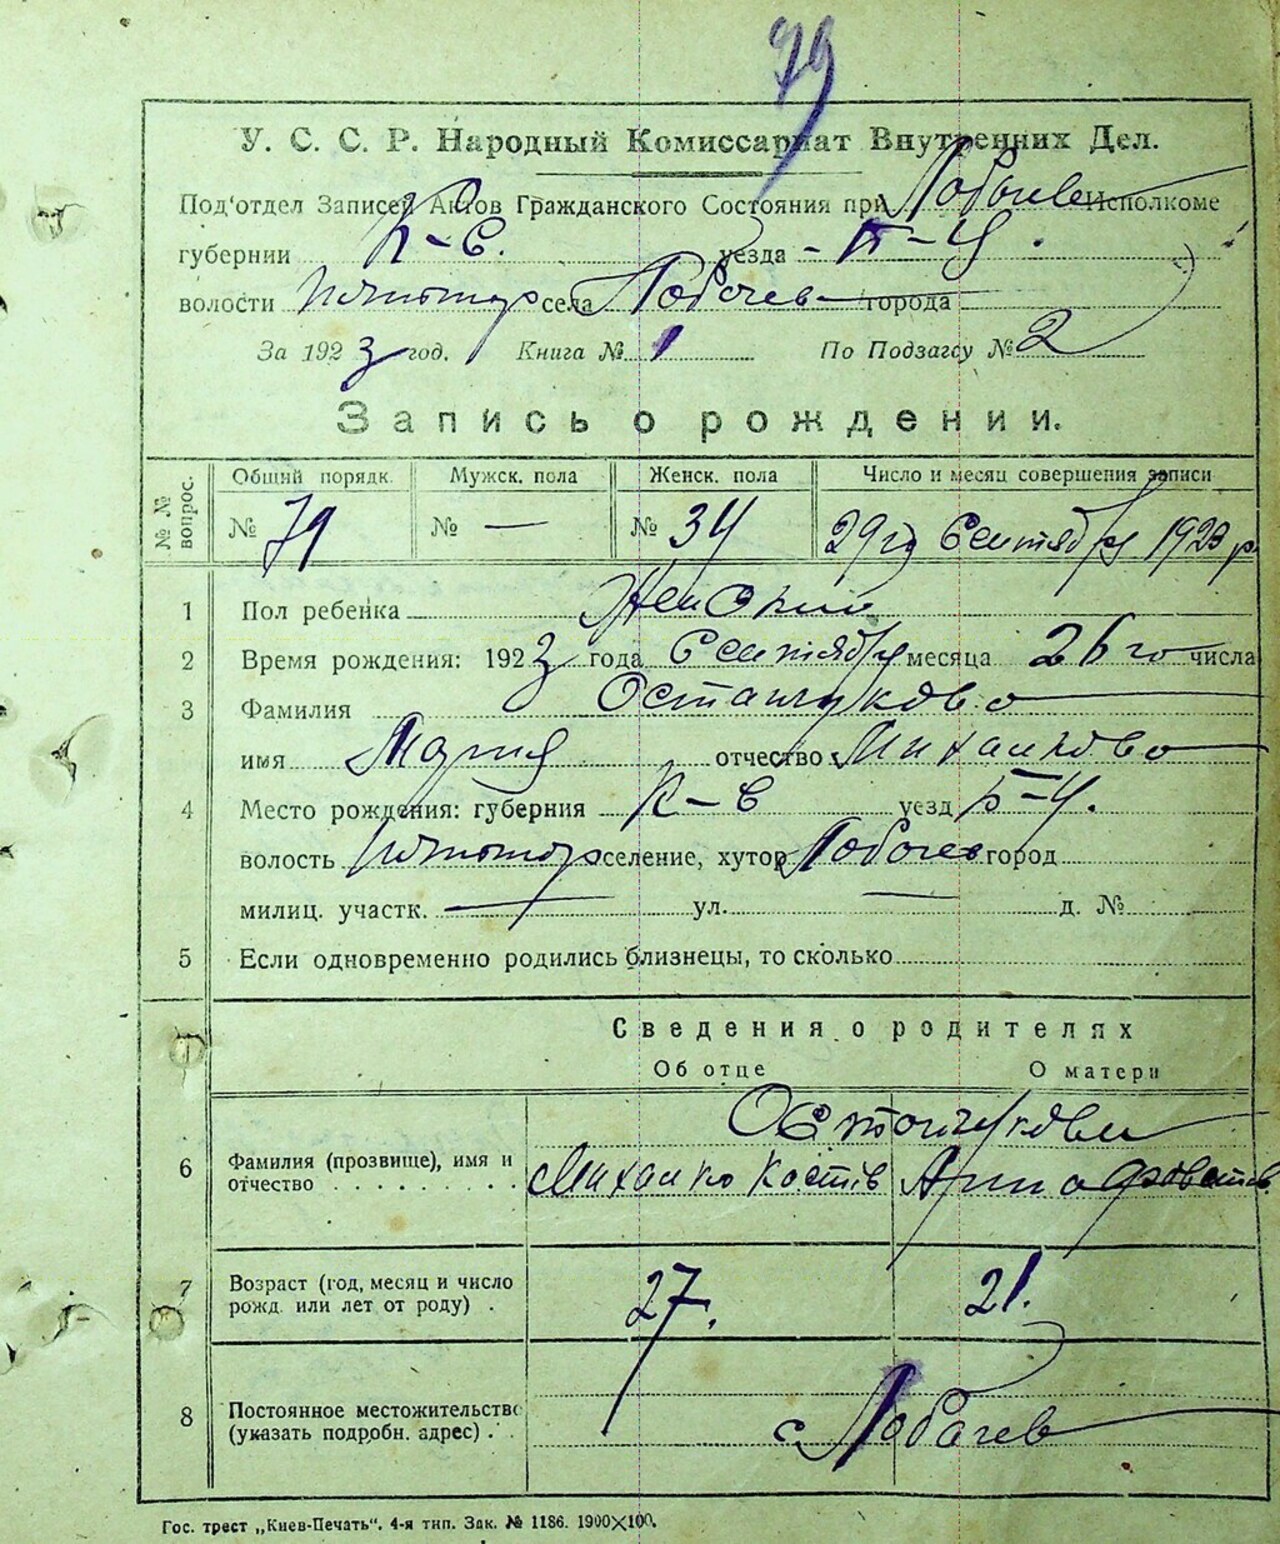 79
У. С. С. Р. Народный Комиссариат Внутренних Дел.
Под'отдел Записей Актов Гражданского Состояния при Лобачев Исполкоме
губернии К-е. уезда - Б-Ц.
волости села Лобачев города
За 1923 год. Книга № 1 По Подзагсу № 2
Запись о рождении.
№ № вопрос. Общий порядк. Мужск. пола Женск. пола Число и месяц совершения записи
№ 79 № — № 34 29го Сентября 1923 р
1 Пол ребенка Женский
2 Время рождения: 1923 года Сентября месяца 26 го числа
3 Фамилия Остапчукова
имя Мария отчество Михайлова
4 Место рождения: губерния К-е уезд Б-Ц.
волость селение, хутор Лобачев город
милиц. участк. — ул. — д. №
5 Если одновременно родились близнецы, то сколько
Сведения о родителях
Об отце О матери
Остапчукови
6 Фамилия (прозвище), имя и отчество Михайло Костів Арина
7 Возраст (год, месяц и число рожд. или лет от роду) . 27. 21.
8 Постоянное местожительство (указать подробн. адрес) . с. Лобачев
Гос. трест „Киев-Печать“. 4-я тип. Зак. № 1186. 1900×100.